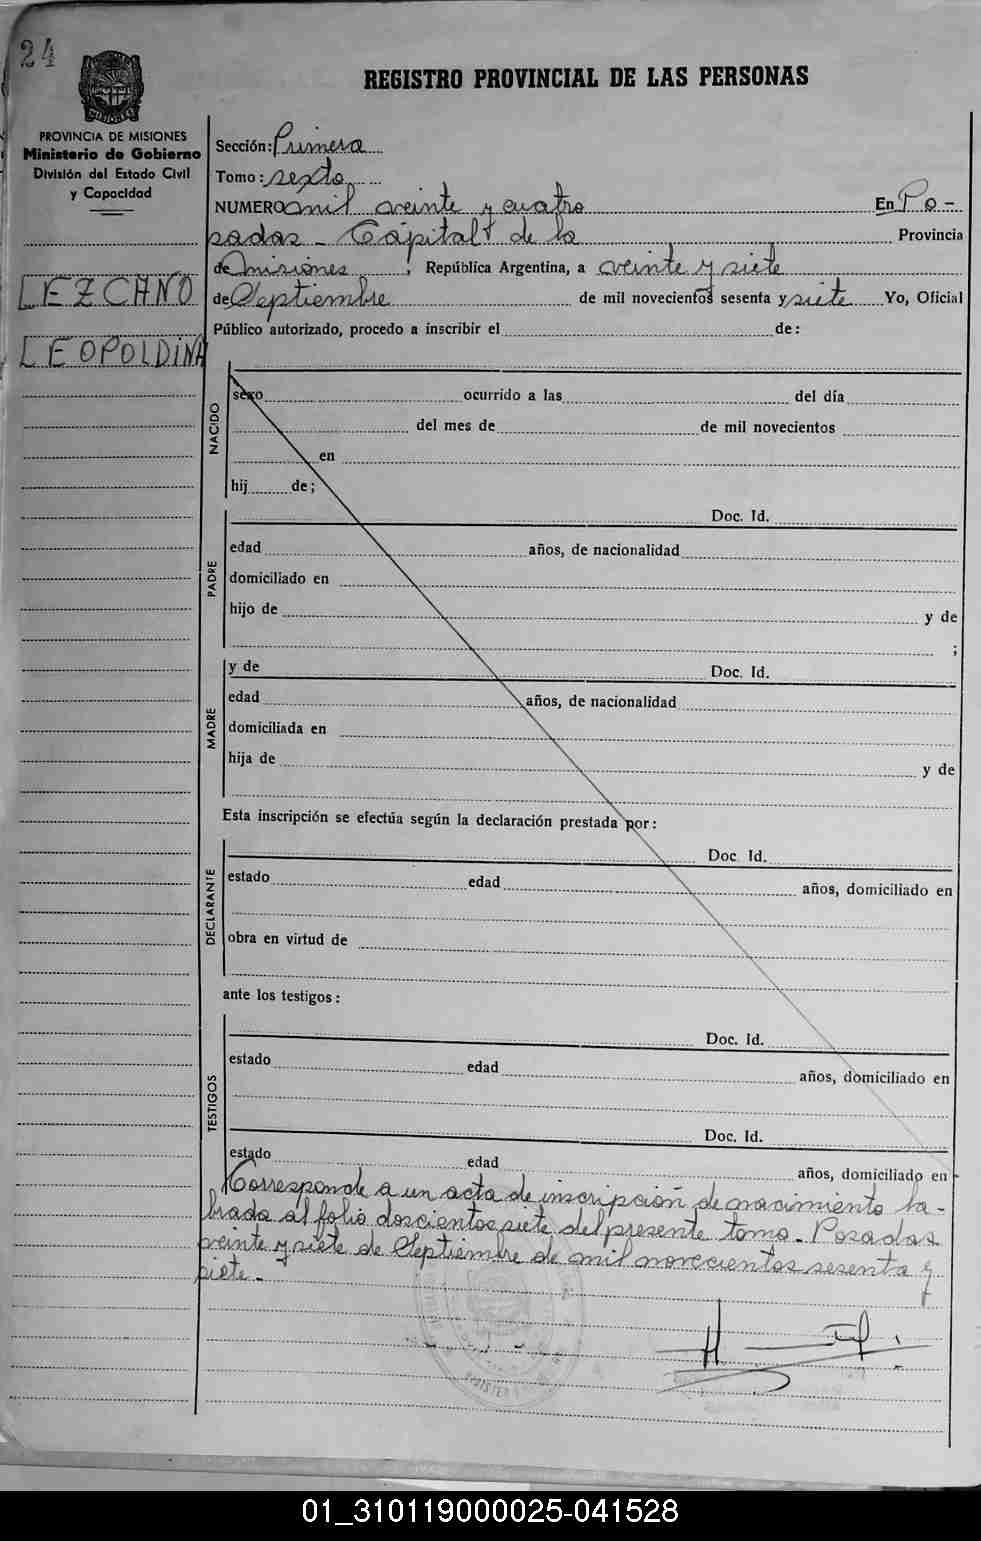 24
REGISTRO PROVINCIAL DE LAS PERSONAS
PROVINCIA DE MISIONES
Ministerio de Gobierno
División del Estado Civil
y Capacidad
LEZCANO
LEOPOLDINA
Sección: Primera
Tomo: sexto
NUMERO mil veinte y cuatro En Po-
sadas - Cápital de la Provincia
de Misiones, República Argentina, a veinte y siete
de Septiembre de mil novecientos sesenta y siete Yo, Oficial
Público autorizado, procedo a inscribir el de:
NACIDO
sexo ocurrido a las del día
del mes de de mil novecientos
en
hij de;
PADRE
Doc. Id.
edad años, de nacionalidad
domiciliado en
hijo de y de
;
MADRE
y de Doc. Id.
edad años, de nacionalidad
domiciliada en
hija de y de
Esta inscripción se efectúa según la declaración prestada por:
DECLARANTE
Doc. Id.
estado edad años, domiciliado en
obra en virtud de
ante los testigos:
TESTIGOS
Doc. Id.
estado edad años, domiciliado en
Doc. Id.
estado edad años, domiciliado en
Corresponde a un acta de inscripción de nacimiento la-
brada al folio doscientos siete del presente tomo. Posadas
veinte y siete de Septiembre de mil novecientos sesenta y
siete.-
01_310119000025-041528